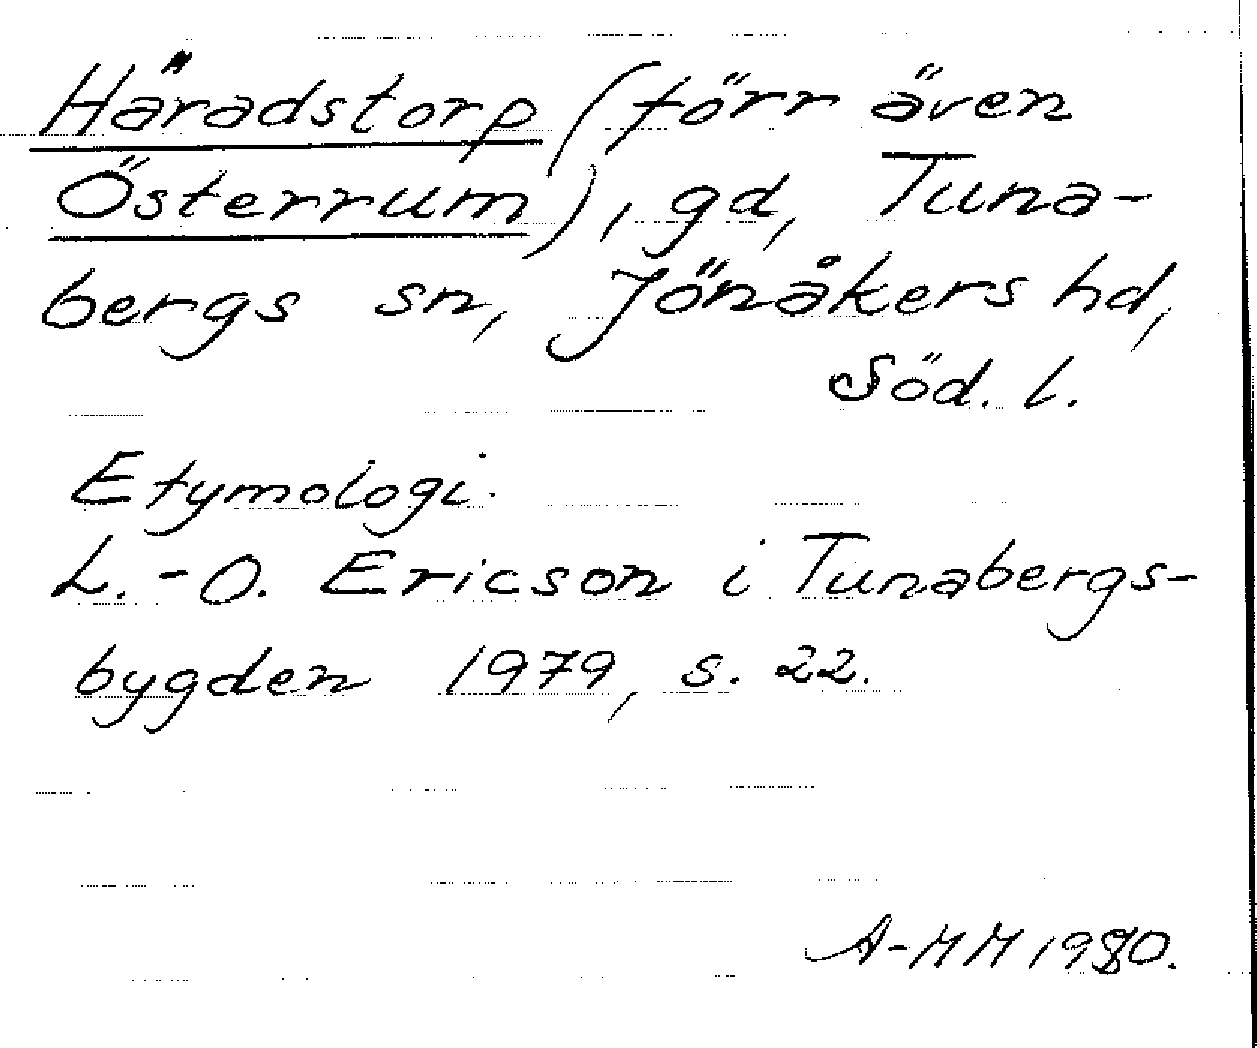 Häradstorp (förr även
Österrum), gd, Tuna-
bergs sn, Jönåkers hd,
Söd. l.
Etymologi.
L.-O. Ericson i Tunabergs-
bygden 1979, s. 22.
A-MM 1980.